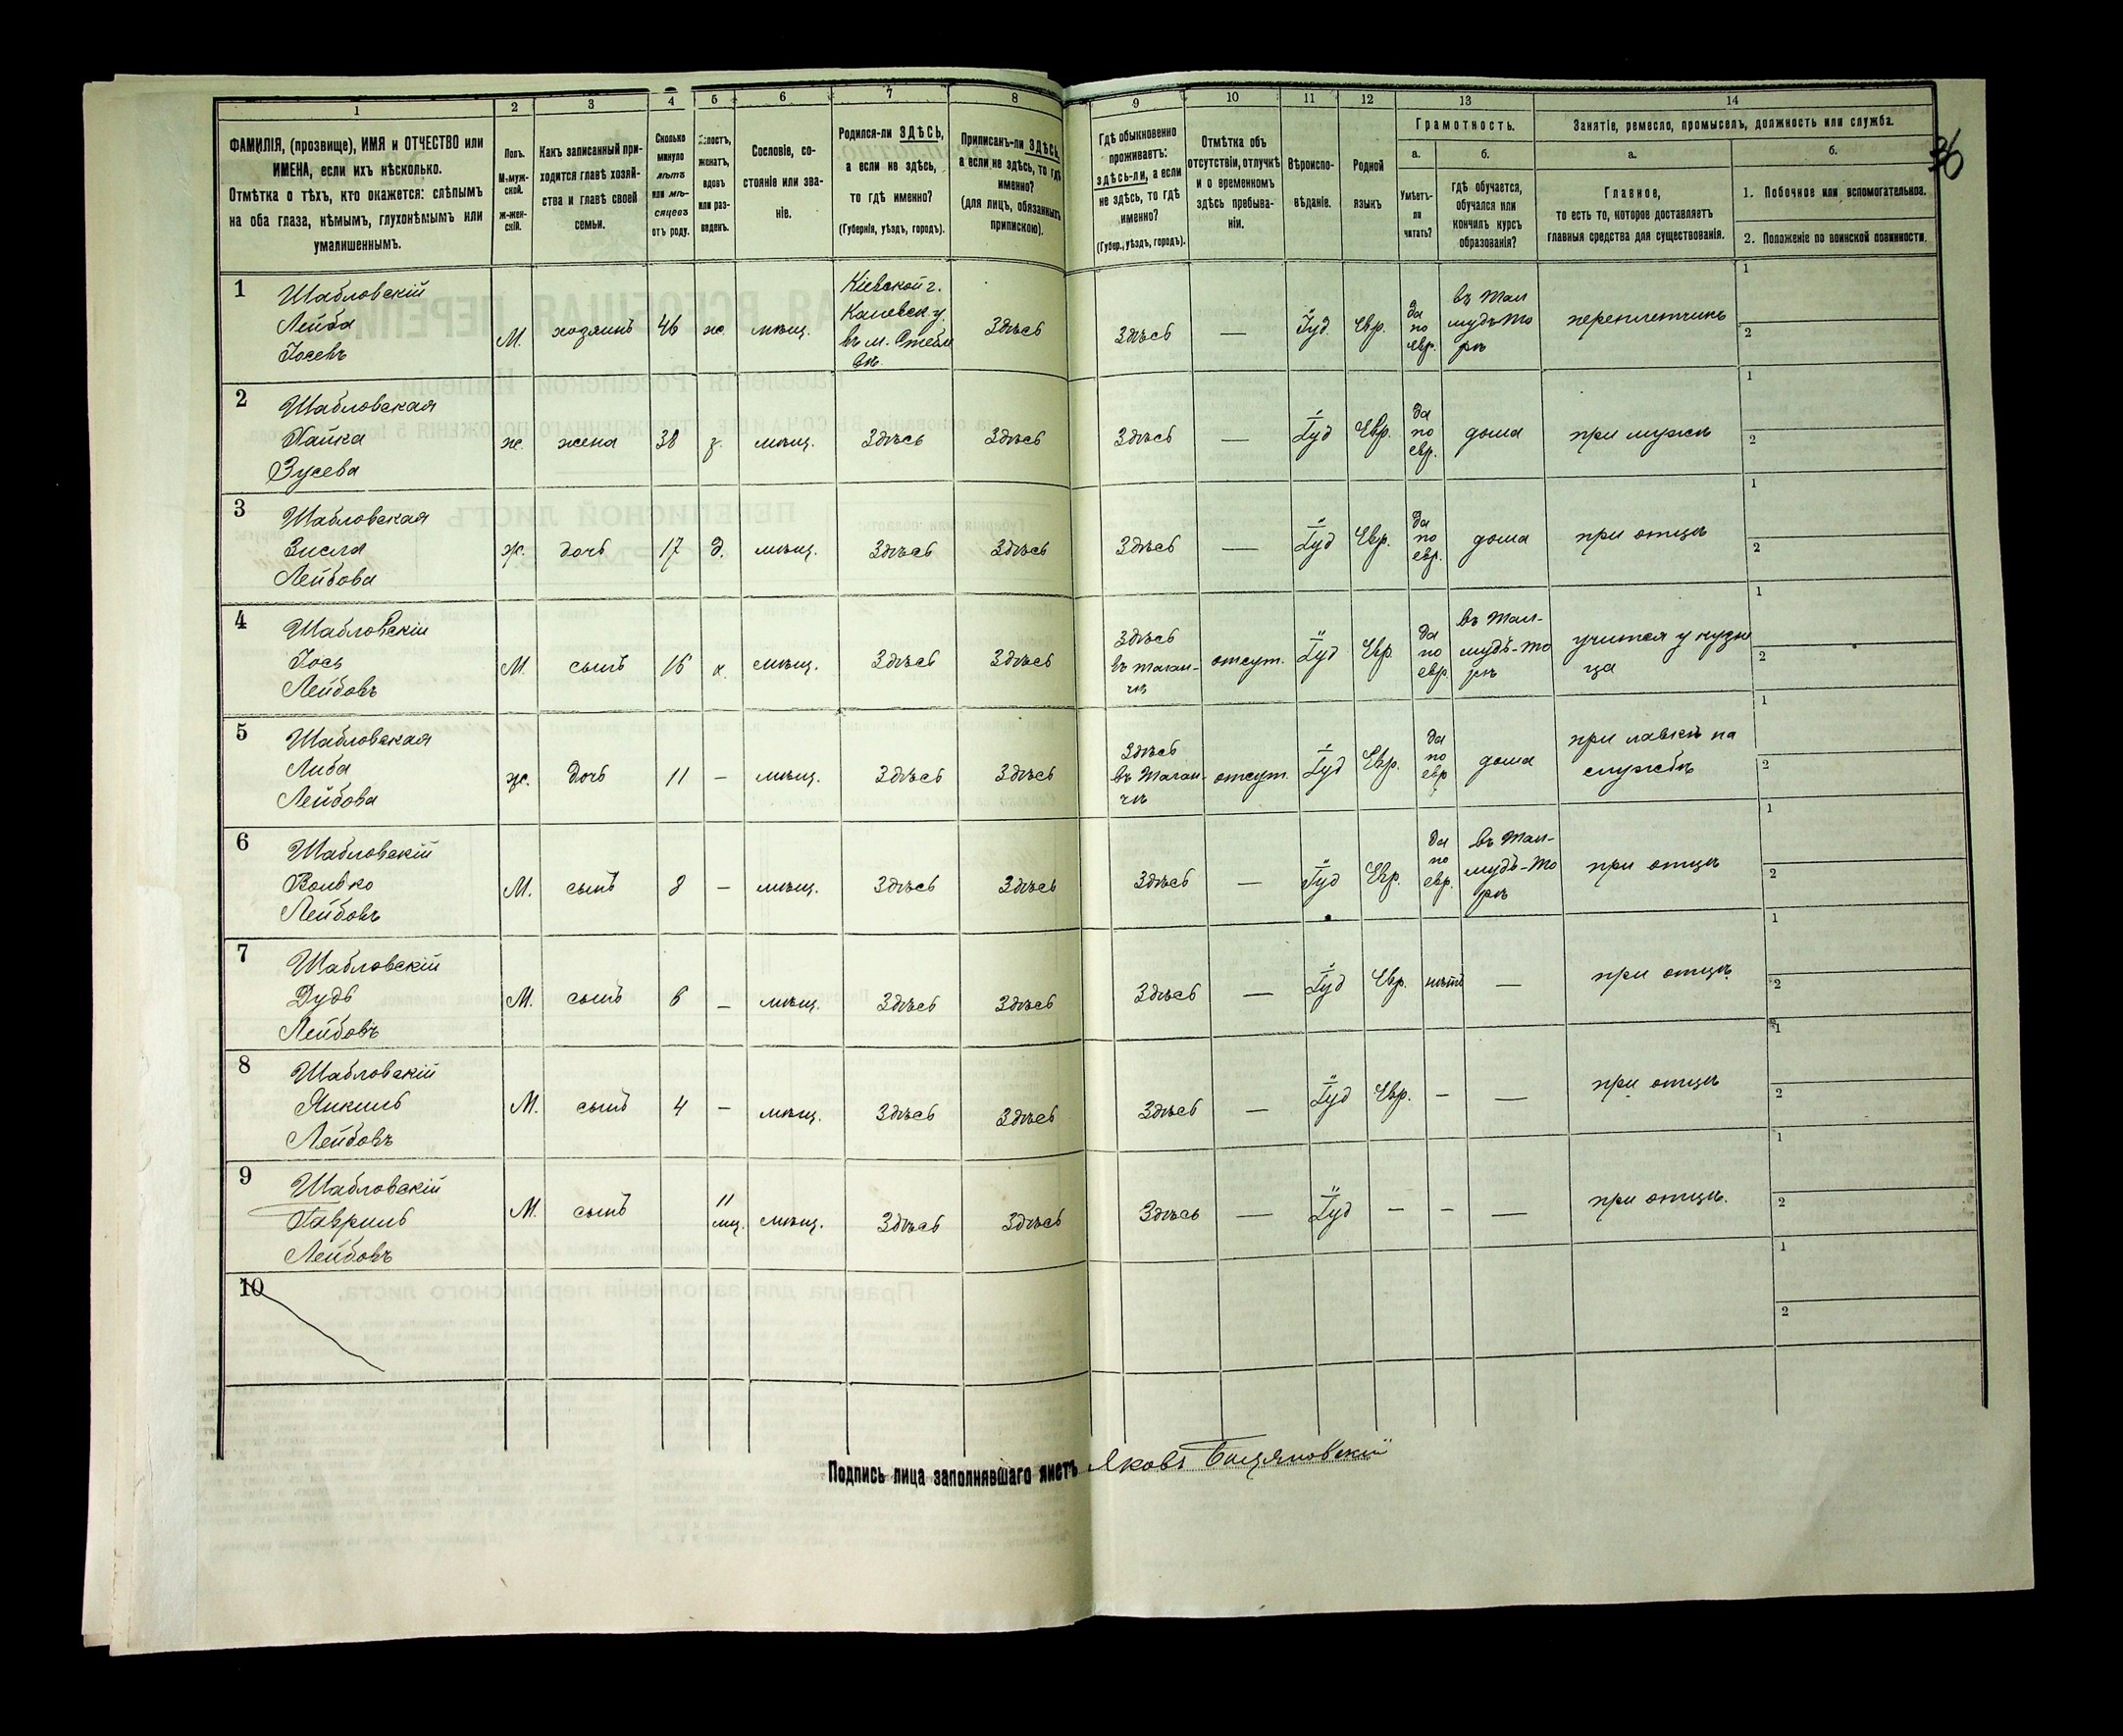 1 2 3 4 5 6 7 8 9 10 11 12 13 14
ФАМИЛІЯ, (прозвище), ИМЯ и ОТЧЕСТВО или
ИМЕНА, если ихъ нѣсколько.
Отмѣтка о тѣхъ, кто окажется: слѣпымъ
на оба глаза, нѣмымъ, глухонѣмымъ или
умалишеннымъ.
Полъ.
М-муж-
ской.
ж-жен-
скій.
Какъ записанный при-
ходится главѣ хозяй-
ства и главѣ своей
семьи.
Сколько
минуло
лѣтъ
или мѣ-
сяцевъ
отъ роду.
Холостъ,
женатъ,
вдовъ
или раз-
веденъ.
Сословіе, со-
стояніе или зва-
ніе.
Родился-ли ЗДѢСЬ,
а если не здѣсь,
то гдѣ именно?
(Губернія, уѣздъ, городъ).
Приписанъ-ли ЗДѢСЬ,
а если не здѣсь, то гдѣ
именно?
(для лицъ, обязанныхъ
припискою).
Гдѣ обыкновенно
проживаетъ:
здѣсь-ли, а если
не здѣсь, то гдѣ
именно?
(Губер., уѣздъ, городъ).
Отмѣтка объ
отсутствіи, отлучкѣ
и о временномъ
здѣсь пребыва-
ніи.
Вѣроиспо-
вѣданіе.
Родной
языкъ
Грамотность.
а.
Умѣетъ-
ли
читать?
б.
гдѣ обучается,
обучался или
кончилъ курсъ
образованія?
Занятіе, ремесло, промыселъ, должность или служба.
а.
Главное,
то есть то, которое доставляетъ
главныя средства для существованія.
б.
1. Побочное или вспомогательное.
2. Положеніе по воинской повинности.
36
1 Шабловскій
Лейба
Іосевъ
М. хозяинъ 46 ж. мѣщ.
Кіевской г.
Каневск у.
въ м. Стебл
вѣ.
Здѣсь Здѣсь — Іуд. Евр.
да
по
евр.
въ Тал
мудъ-То
рѣ
переплетчикъ
1
2
2 Шабловская
Хайка
Зусева
ж. жена 38 з. мѣщ. Здѣсь Здѣсь Здѣсь — Іуд Евр.
да
по
евр.
дома при мужѣ
1
2
3 Шабловская
Зисля
Лейбова
ж. дочь 17 д. мѣщ. Здѣсь Здѣсь Здѣсь — Іуд Евр.
да
по
евр.
дома при отцѣ
1
2
4 Шабловскій
Іось
Лейбовъ
М. сынъ 16 х. мѣщ. Здѣсь Здѣсь
Здѣсь
въ Таган-
чѣ
отсут. Іуд Евр.
да
по
евр.
въ Тал-
мудъ-То
рѣ
учится у кузне
ца
1
2
5 Шабловская
Либа
Лейбова
ж. дочь 11 — мѣщ. Здѣсь Здѣсь
Здѣсь
въ Таган-
чѣ
отсут. Іуд Евр.
да
по
евр
дома
при лавкѣ на
службѣ
1
2
6 Шабловскій
Волько
Лейбовъ
М. сынъ 8 — мѣщ. Здѣсь Здѣсь Здѣсь — Іуд Евр.
да
по
евр.
въ Тал-
мудъ-То
рѣ
при отцѣ
1
2
7 Шабловскій
Дудь
Лейбовъ
М. сынъ 6 — мѣщ. Здѣсь Здѣсь Здѣсь — Іуд Евр. нѣтъ — при отцѣ
1
2
8 Шабловскій
Янкель
Лейбовъ
М. сынъ 4 — мѣщ. Здѣсь Здѣсь Здѣсь — Іуд Евр. — — при отцѣ
1
2
9 Шабловскій
Гавриль
Лейбовъ
М. сынъ
11
мц.
мѣщ. Здѣсь Здѣсь Здѣсь — Іуд — — — при отцѣ.
1
2
10
1
2
Подпись лица заполнявшаго листъ Яковъ